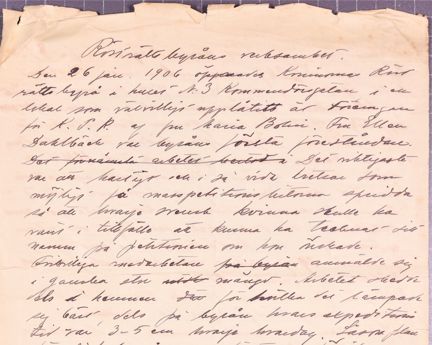 Rösträttsbyråns verksamhet.
Den 26 jan. 1906 öppnades Kvinnorna Röst
rätts byrå i huset N. 3 Kommendörsgatan i en
lokal som välvilligt uppläts åt föreningen
för K. P. R. af fru Maria Bolin. Frk Ellen
Dahlbäck var byråns första föreståndare.
Det förnämsta arbetet bestod i Det viktigaste
var att hastigt och i så vida kretsar som
möjligt få masspetitionslistorna spridda
så att hvarje svensk kvinna skulle ha
varit i tillfälle att kunna ha tecknat sitt
namn på petitionen om hon önskade.
Frivilliga medarbetare på byrån anmälde sig
i ganska stor mängd. Arbetet skedde
dels i hemmen för hvilka det lämpade
sig bäst, dels på byrån hvars expeditions
tid var 2-5 em hvarje hvardag.